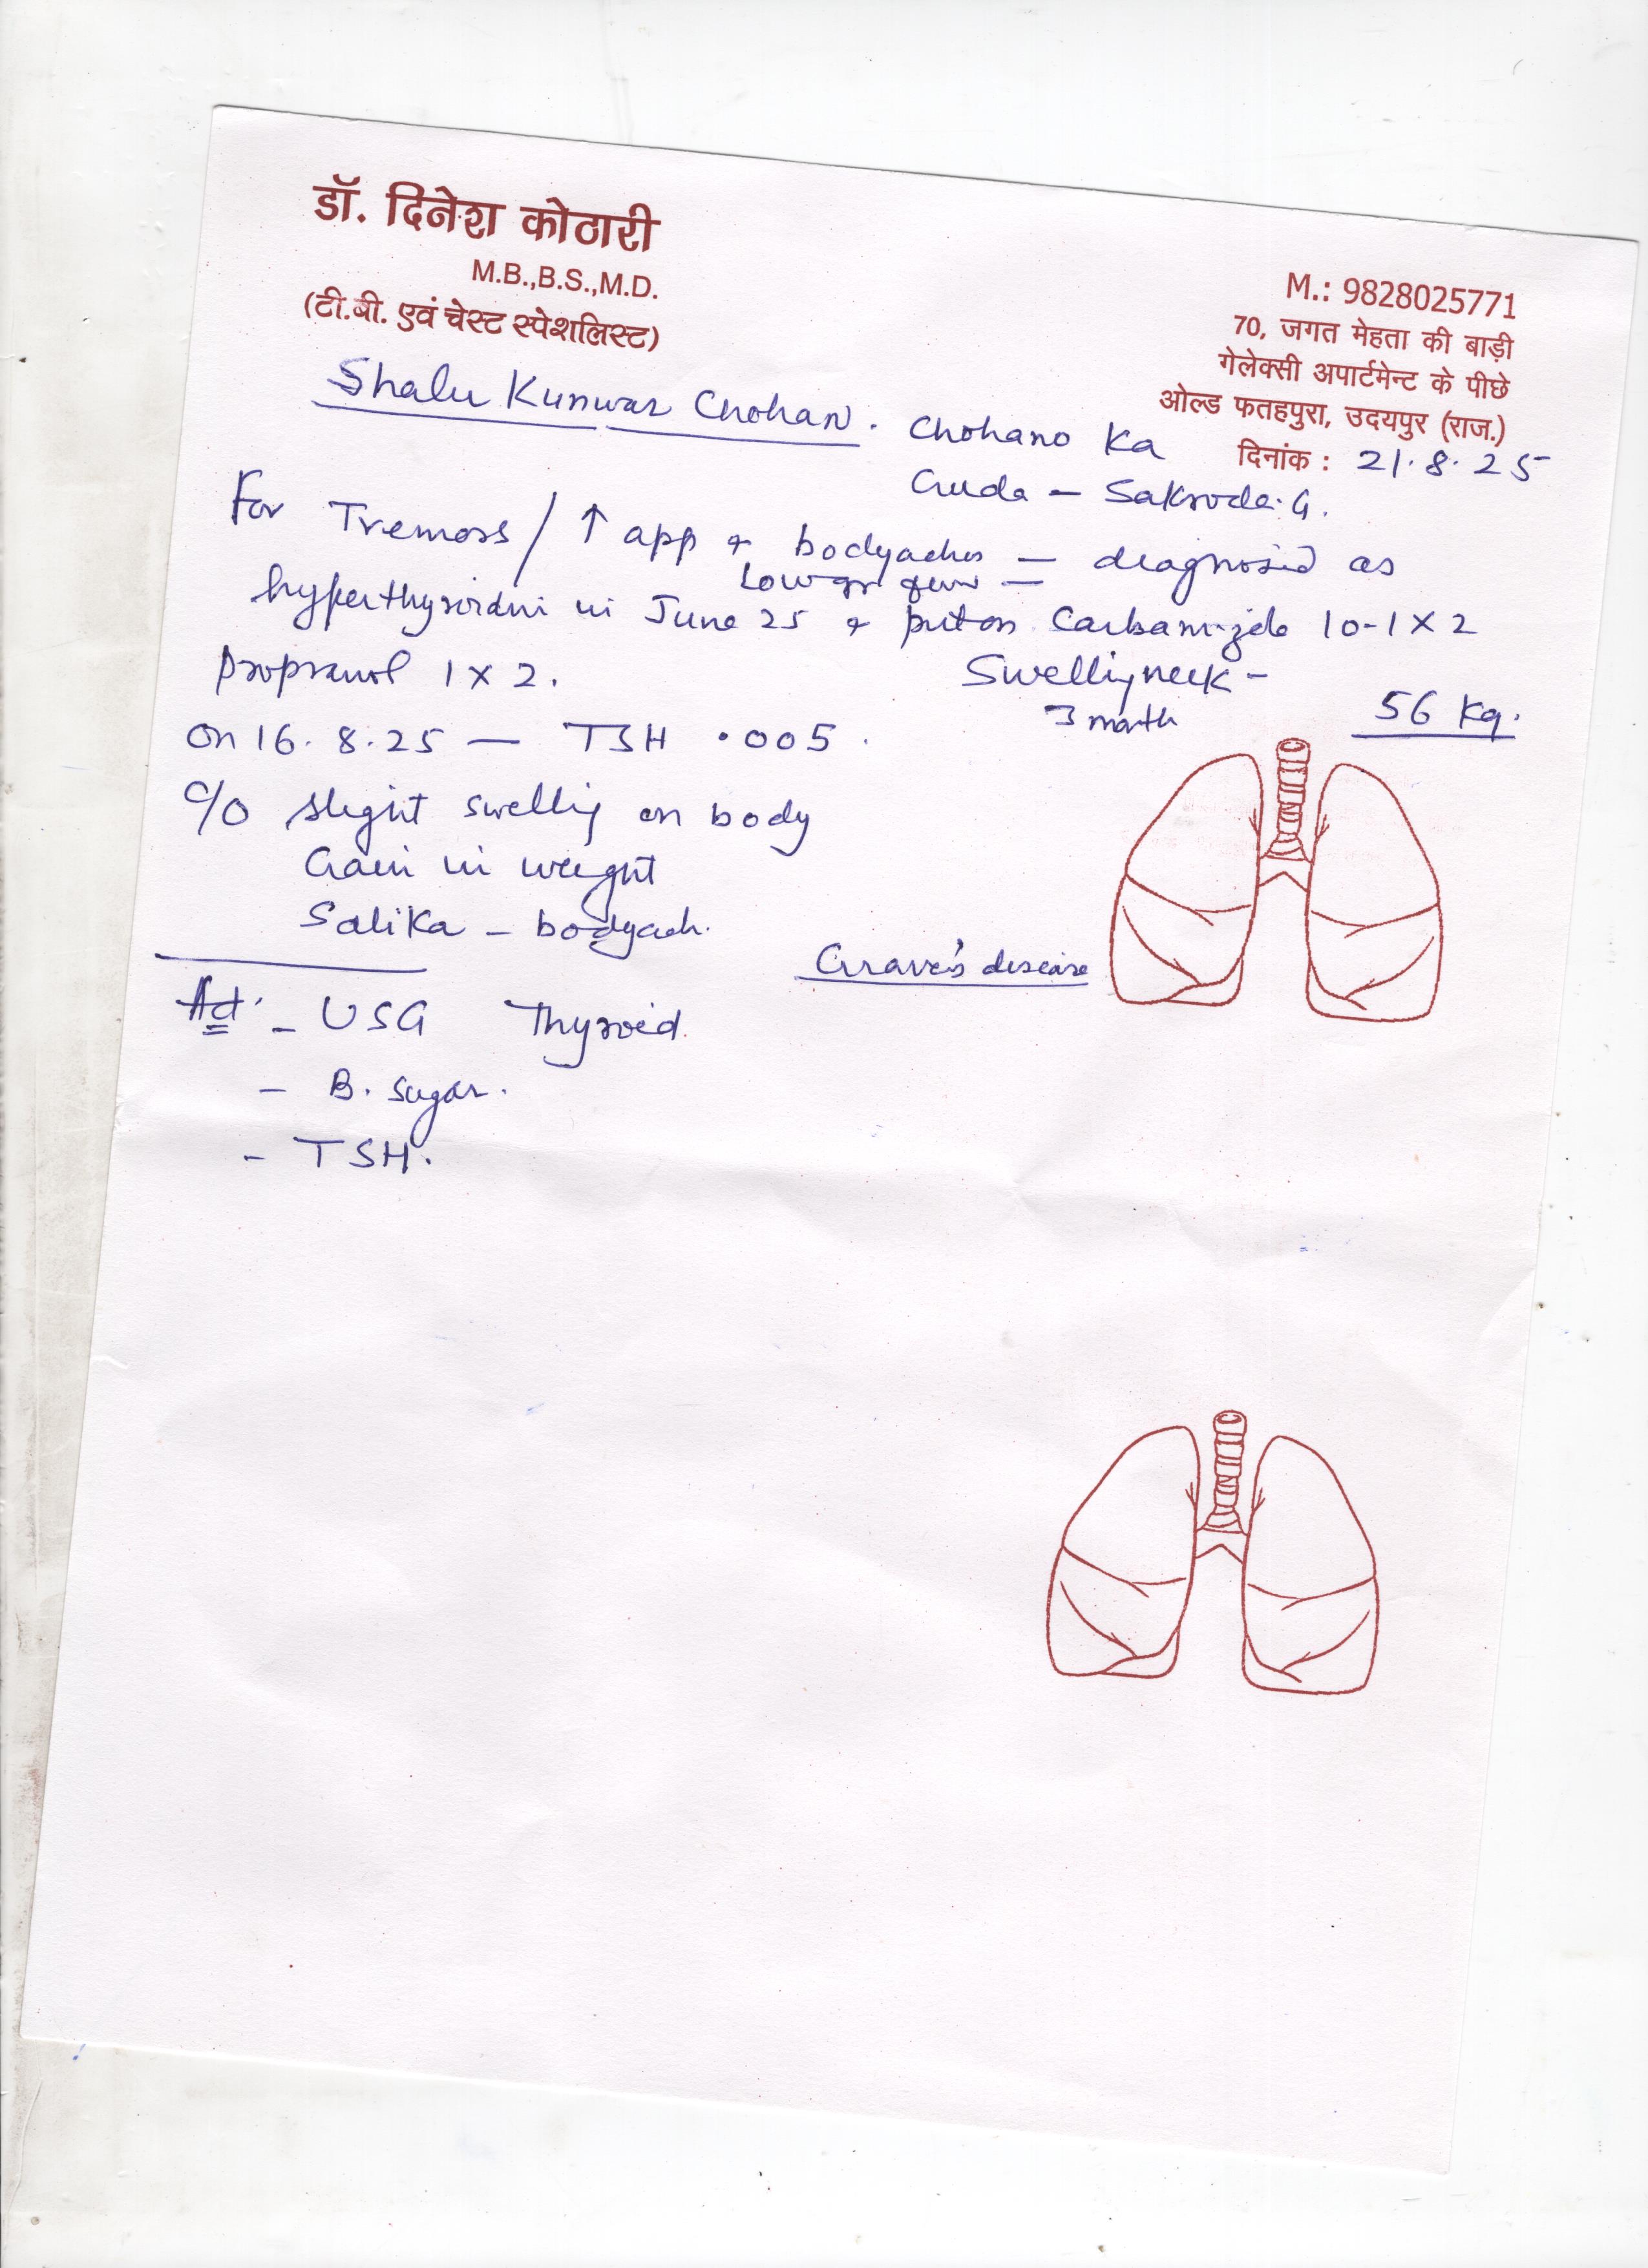 डॉ. दिनेश कोठारी
M.B.,B.S.,M.D.
(टी.बी. एवं चेस्ट स्पेशलिस्ट)
M.: 9828025771
70, जगत मेहता की बाड़ी
गेलेक्सी अपार्टमेन्ट के पीछे
ओल्ड फतहपुरा, उदयपुर (राज.)
दिनांक : 21.8.25
Shalu Kunwar Chohan. Chohano Ka
Guda - Sakroda. G.
For Tremors / ↑ app + bodyaches — diagnosed as
Low gr fever —
hyperthyroidm in June 25 + put on Carbamizole 10-1 x 2
Propranol 1 x 2.
Swelling neck -
3 month
56 Kg.
On 16.8.25 — TSH .005.
C/O slight swelling on body
Gain in weight
Salika - bodyach.
Grave's disease
Ad. - USG Thyroid.
- B. Sugar.
- TSH.